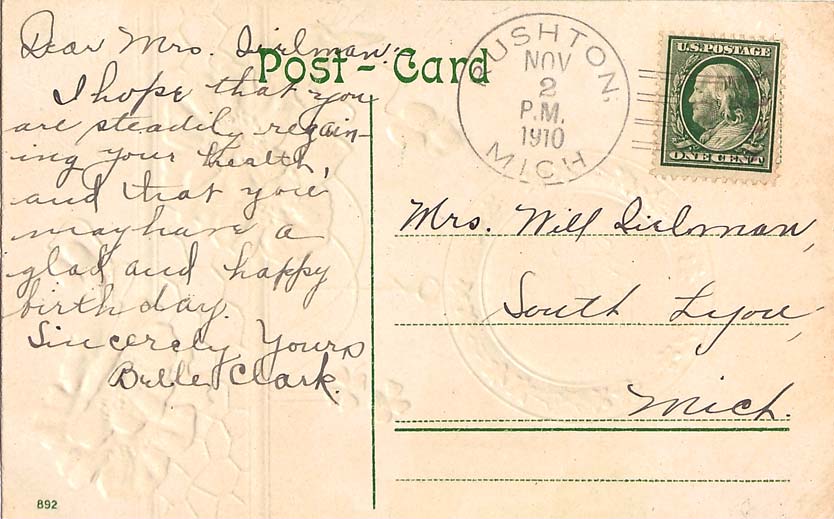 Dear Mrs. Dielman:
Post-Card
I hope that you
are steadily regain-
ing your health,
and that you
may have a
glad and happy
birthday.
Sincerely Yours
Belle Clark.
892
RUSHTON,
NOV
2
P.M.
1910
MICH
U.S. POSTAGE
ONE CENT
Mrs. Will Dielman,
South Lyon,
Mich.